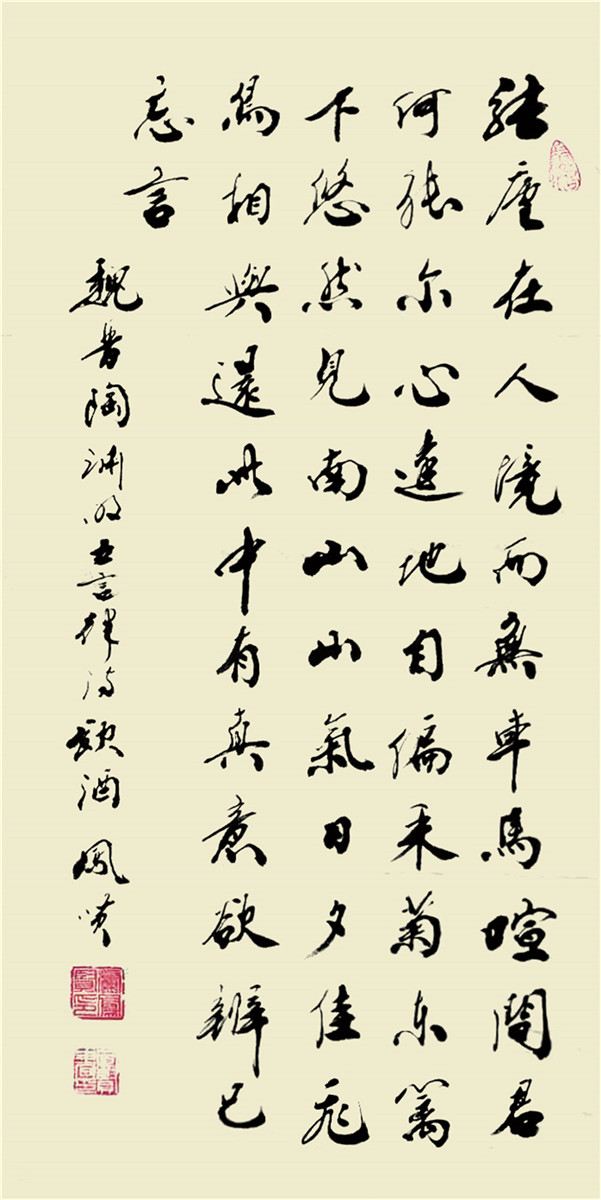 結廬在人境而無車馬喧問君
何能尔心遠地自偏采菊东篱
下悠然見南山山氣日夕佳飛
鳥相與還此中有真意欲辨已
忘言
魏晉陶渊明五言律诗飲酒 鳳